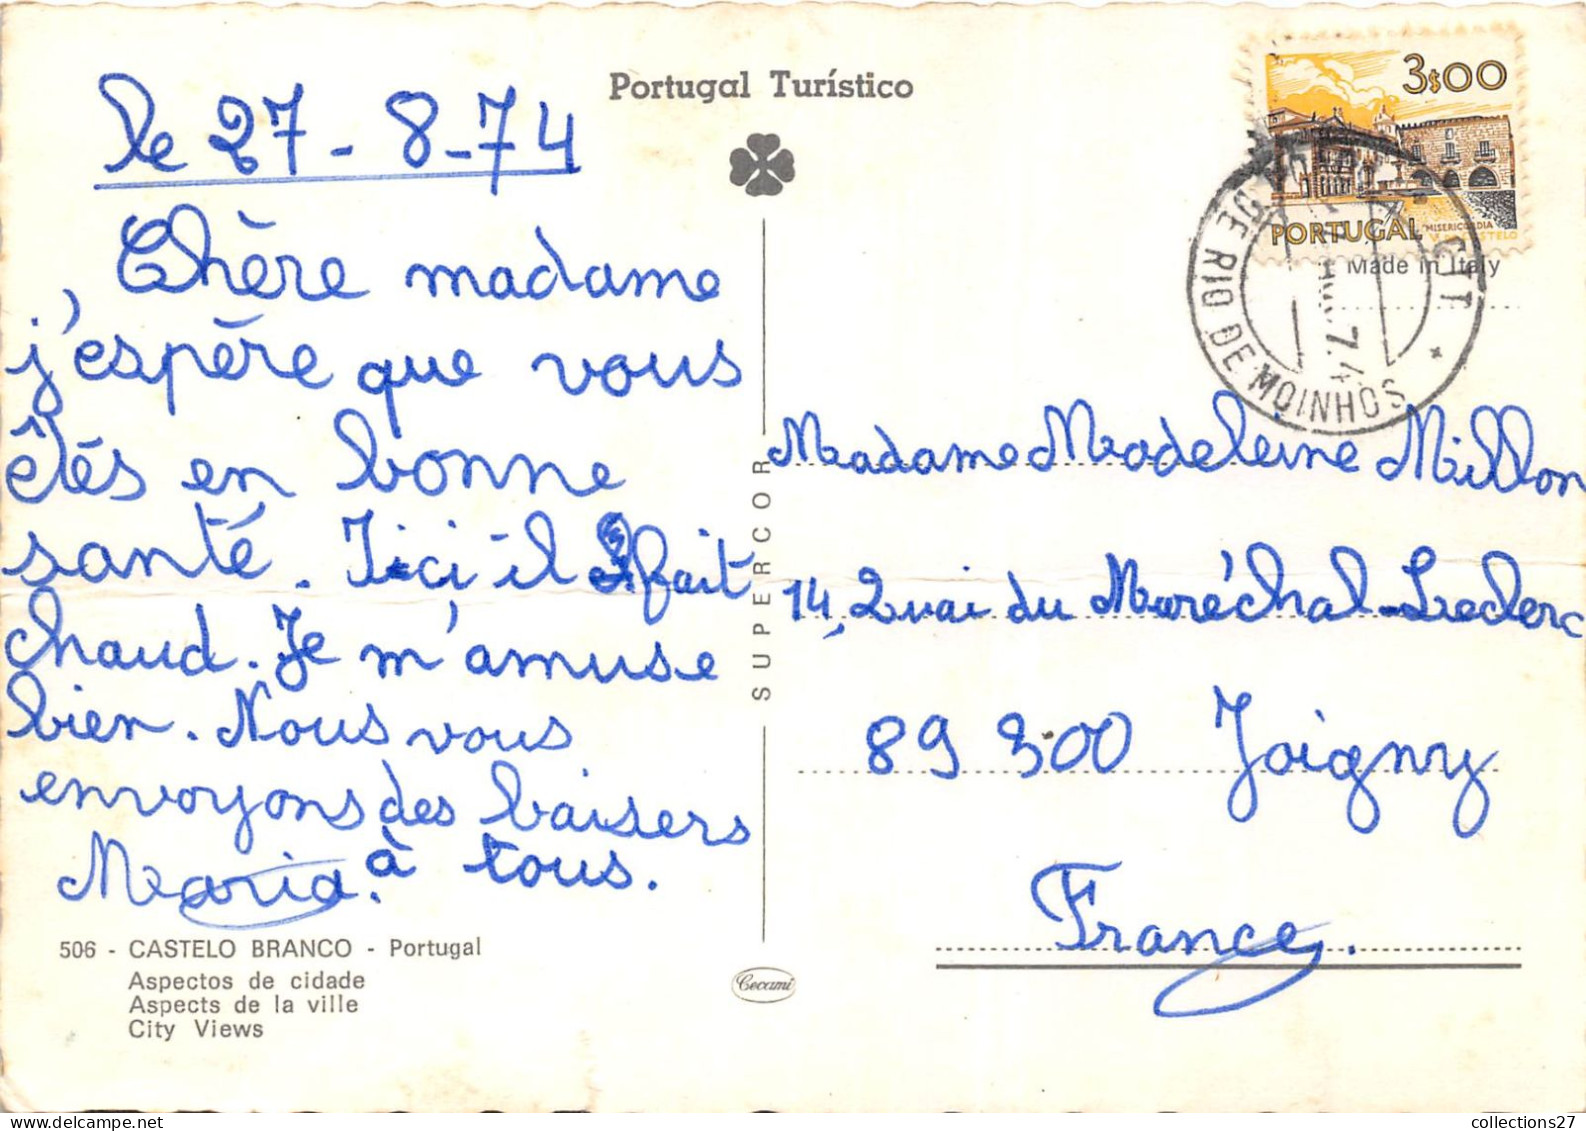 Portugal Turístico
le 27 - 8 - 74
Chère madame,
j'espère que vous
êtés en bonne
santé. Ici il fait
chaud. Je m'amuse
bien. Nous vous
envoyons des baisers
à tous.
Maria.
506 - CASTELO BRANCO - Portugal
Aspectos de cidade
Aspects de la ville
City Views
SUPERCOR
Cecami
3$00
PORTUGAL
MISERICORDIA
Made in Italy
CTT
DE RIO DE MOINHOS
74
Madame Madeleine Millon
14, Quai du Maréchal-Leclerc
89 300 Joigny
France.
collections27